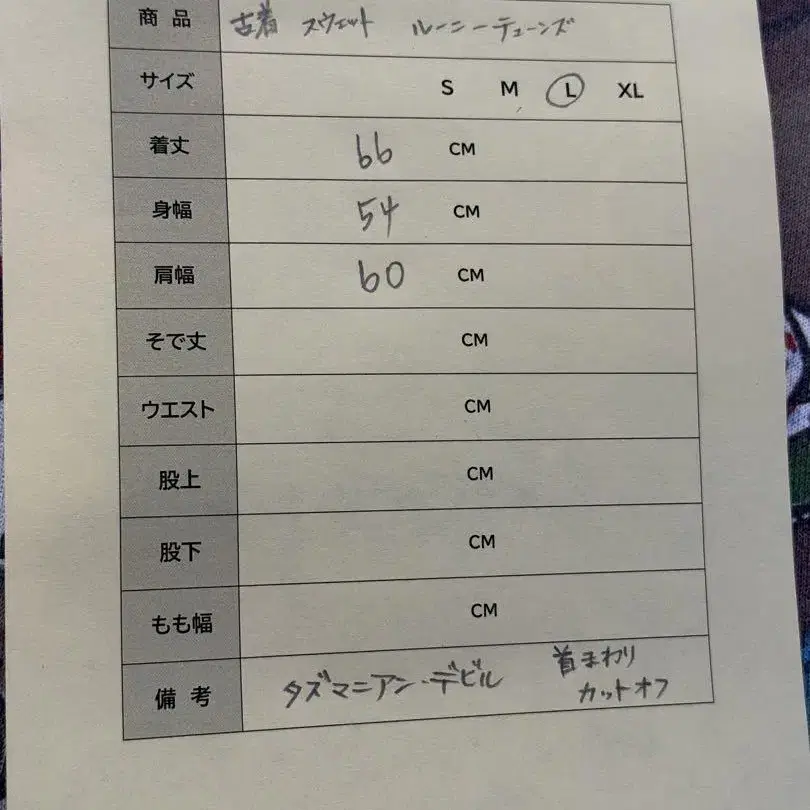 商品 古着 スウェット ルーニーテューンズ
サイズ S M L XL
着丈 66 CM
身幅 54 CM
肩幅 60 CM
そで丈 CM
ウエスト CM
股上 CM
股下 CM
もも幅 CM
備考 タズマニアン・デビル 首まわり
カットオフ